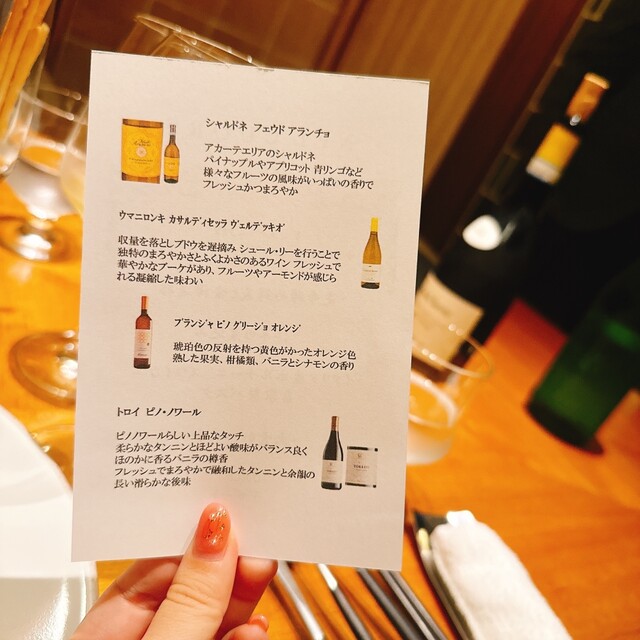 シャルドネ フェウド アランチョ
アカーテエリアのシャルドネ
パイナップルやアプリコット 青リンゴなど
様々なフルーツの風味がいっぱいの香りで
フレッシュかつまろやか
ウマニロンキ カサルディセッラ ヴェルデッキオ
収量を落としブドウを遅摘み シュール・リーを行うことで
独特のまろやかさとふくよかさのあるワイン フレッシュで
華やかなブーケがあり、フルーツやアーモンドが感じら
れる凝縮した味わい
ブランジャ ピノ グリージョ オレンジ
琥珀色の反射を持つ黄色がかったオレンジ色
熟した果実、柑橘類、バニラとシナモンの香り
トロイ ピノ・ノワール
ピノノワールらしい上品なタッチ
柔らかなタンニンとほどよい酸味がバランス良く
ほのかに香るバニラの樽香
フレッシュでまろやかで融和したタンニンと余韻の
長い滑らかな後味